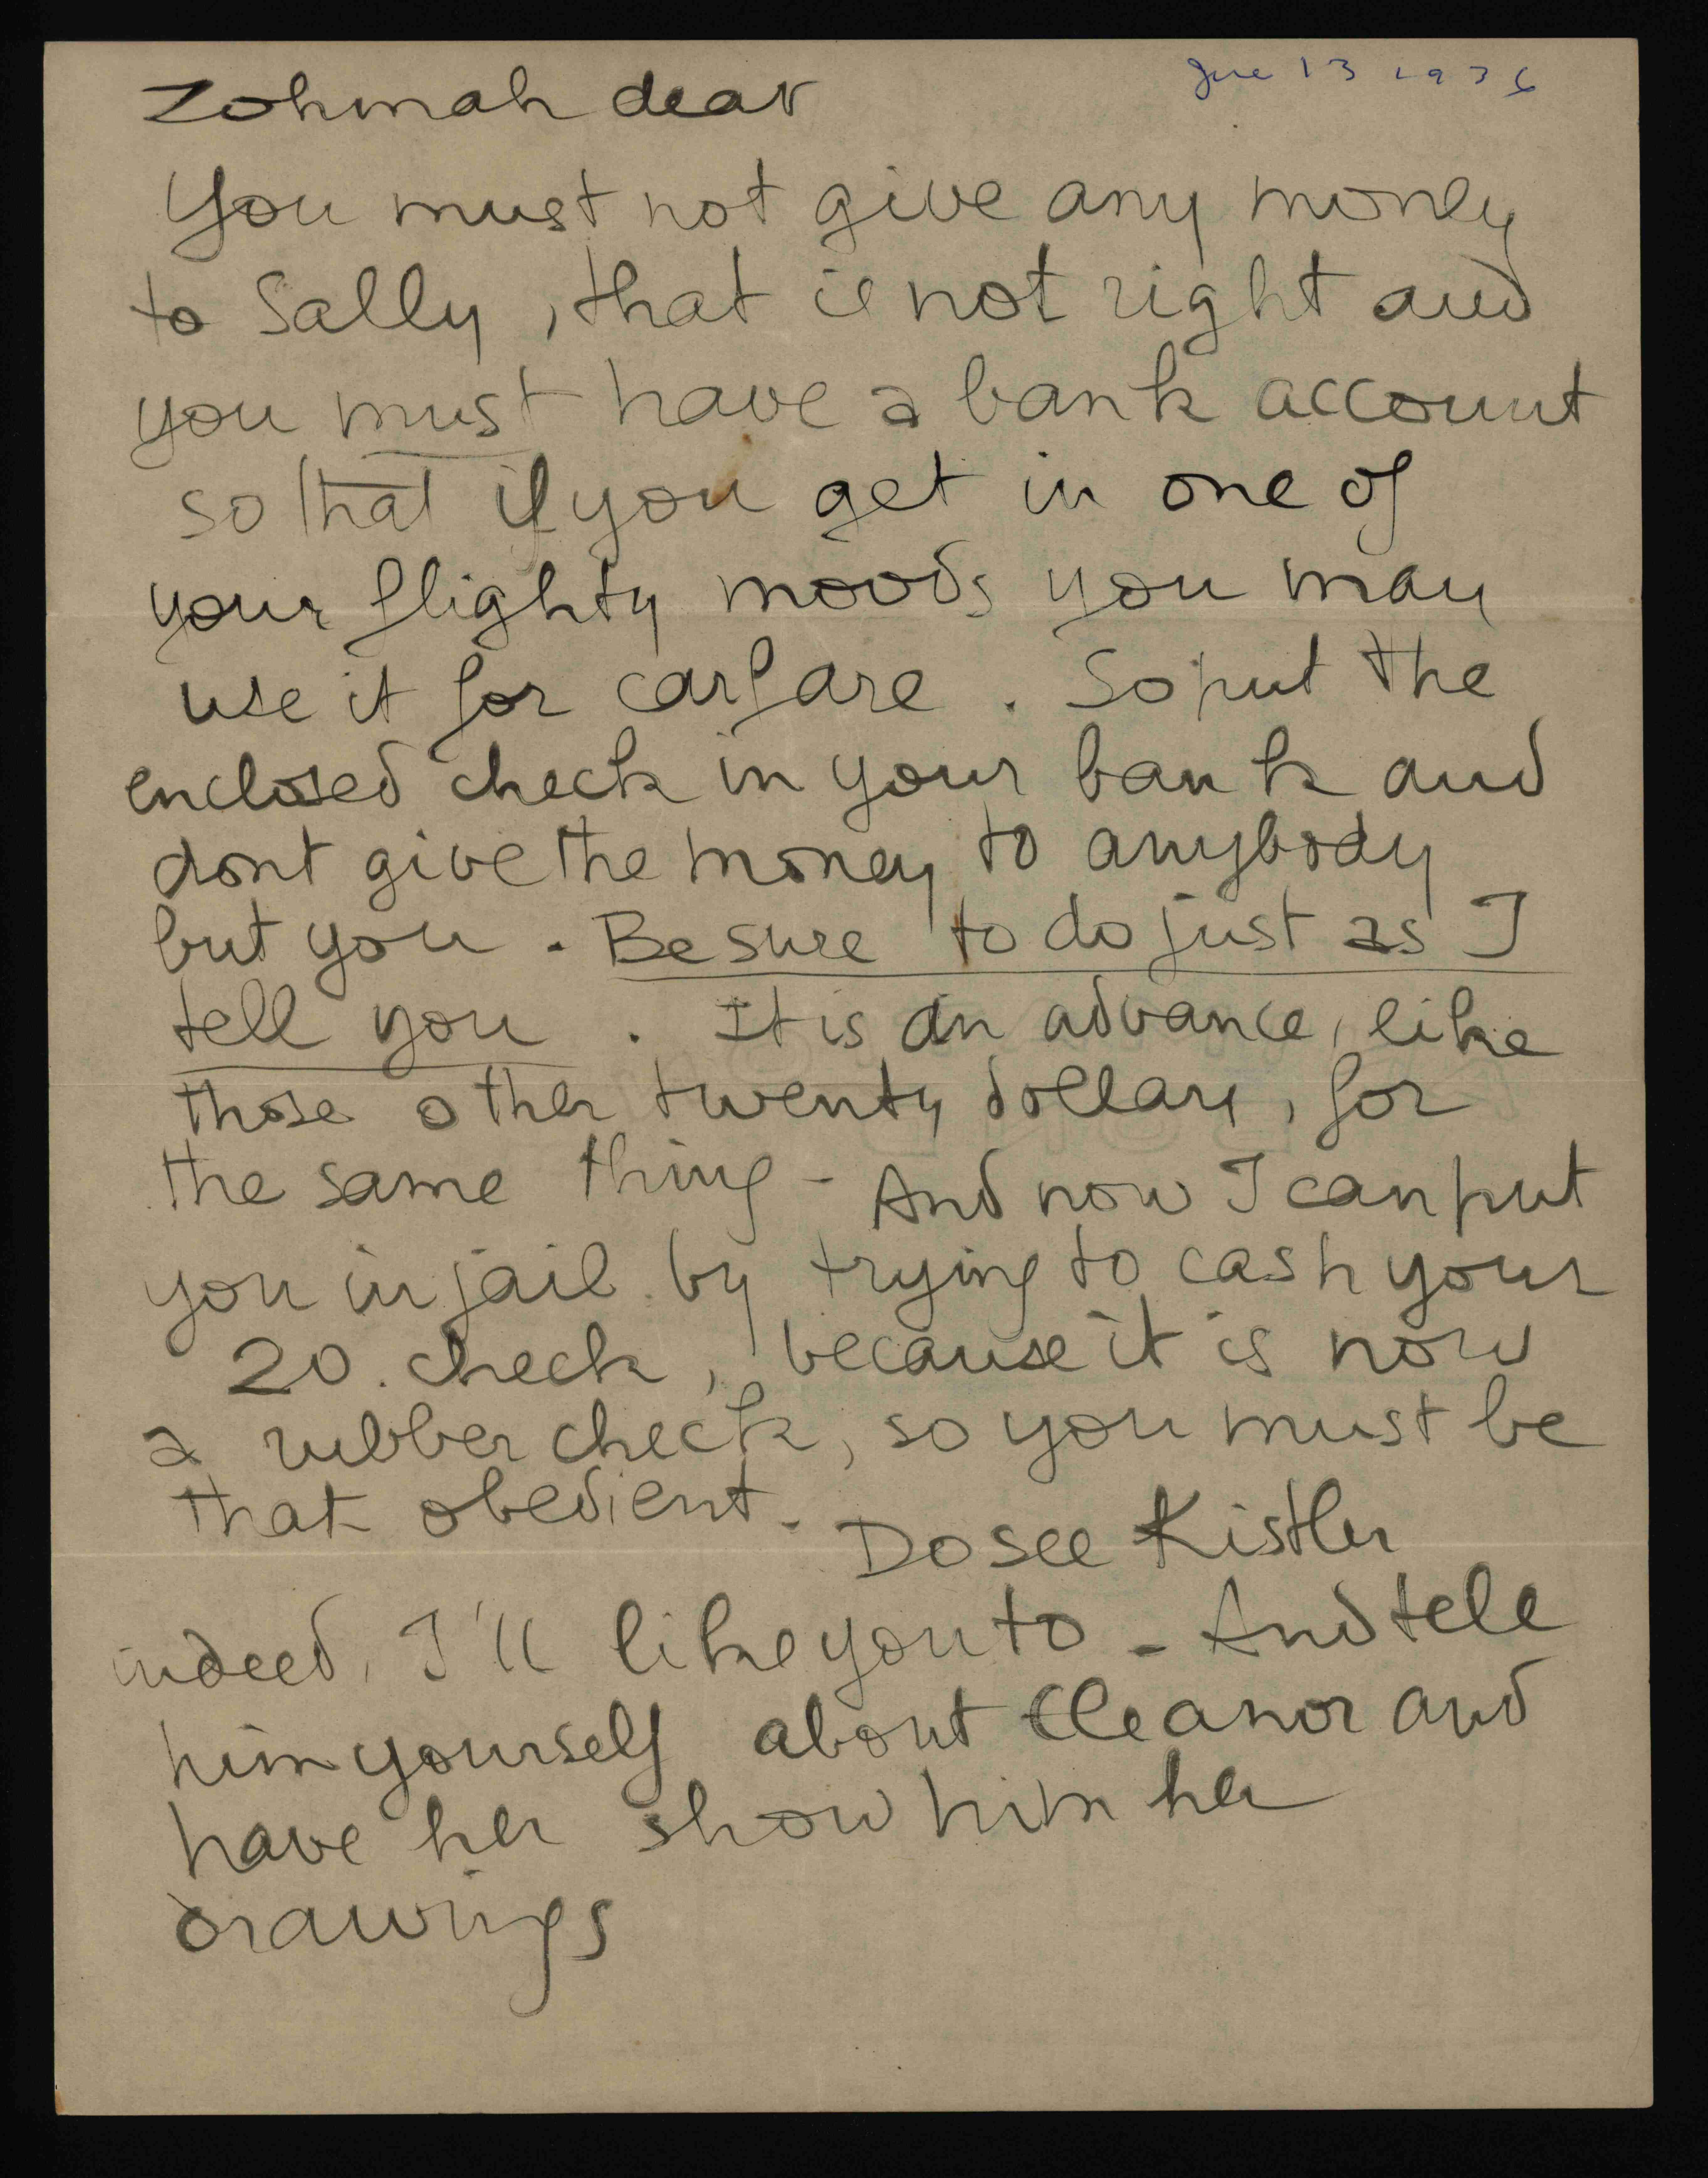 June 13 1936
Zohmah dear
You must not give any money
to Sally, that is not right and
you must have a bank account
so that if you get in one of
your flighty moods you may
use it for carfare. So put the
enclosed check in your bank and
dont give the money to anybody
but you. Be sure to do just as I
tell you. It is an advance, like
those other twenty dollars, for
the same thing - And now I can put
you in jail by trying to cash your
20. check, because it is now
a rubber check, so you must be
that obedient. Do see Kistler
indeed, I'll like you to - And tell
him yourself about Eleanor and
have her show him her
drawings